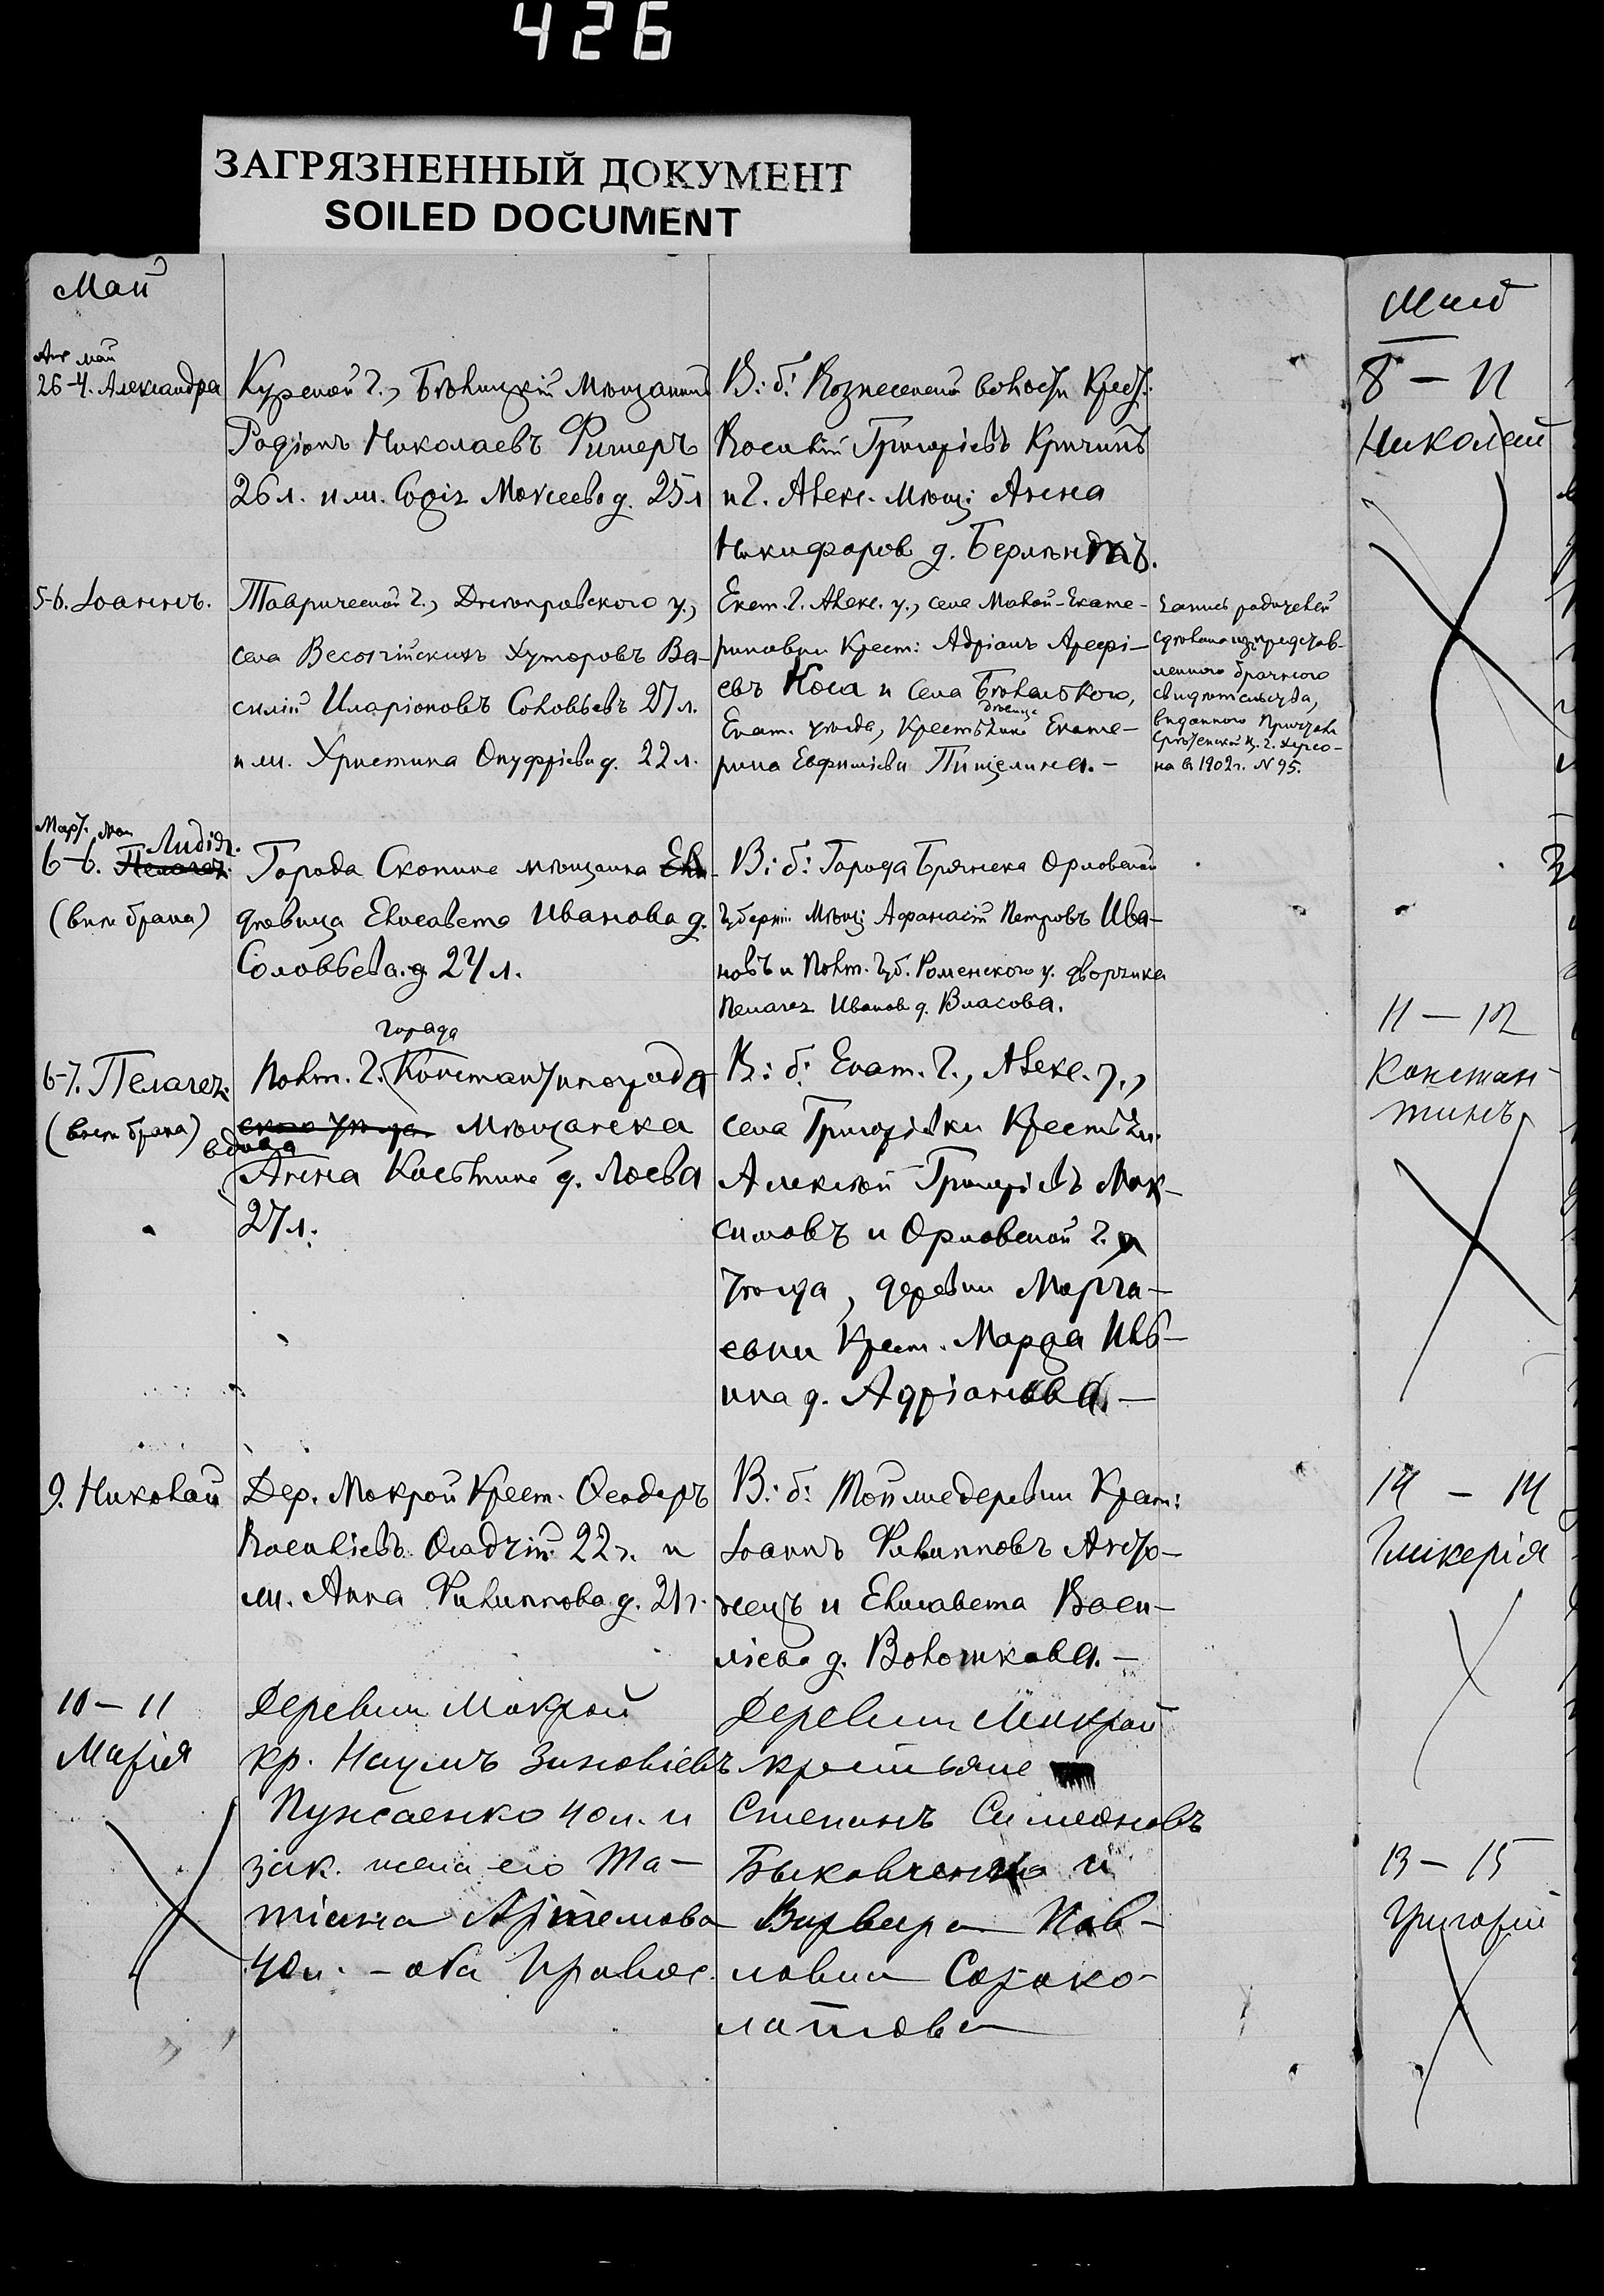 426
ЗАГРЯЗНЕННЫЙ ДОКУМЕНТ
SOILED DOCUMENT
Май
Апр май
26-4. Александра
Курской г., Бѣлицкій Мѣщанинъ
Родіонъ Николаевъ
26 л. и ж. Софія Моисеева д. 25 л
В: б: Вознесенской волости Крест.
Василій Григорьевъ Кричинъ
и г. Алекс. Мѣщ: Анна
Никифоров д.
5-6. Іоаннъ.
Таврической г., Днѣпровского у.,
села Хуторовъ Ва-
силій Иларіоновъ Соловьевъ 27 л.
и ж. Христина Онуфріева д. 22 л.
Екат. г. Алекс. у., села Малой-Екате-
риновки Крест: Адріанъ Арефі-
евъ Коса и села Бѣленького,
дѣвица
Екат. уѣзда, Крестьянка Екате-
рина Евфиміева Пищелина. -
Запись рожденій
сдѣлана изъ представ-
леннаго брачного
свидѣтельства,
виданного Причтомъ
Срѣтенской ц. г. Херсо-
на въ 1902 г. N 95.
Март. Май
Лидія.
6-6. Пелагея.
(внѣ брака)
Города Скопина мѣщанка
дѣвица Елисавета Иванова д.
Соловьева. д. 24 л.
В: б: Города Брянска Орловской
Губерніи Мѣщ: Афанасій Петровъ Ива-
новъ и Полт. Губ. Роменского у. дворянка
Пелагея Иванов д. Власова.
6-7. Пелагея.
(внѣ брака)
города
Полт. г. Константинограда
ского уѣзда Мѣщанска
вдова
Анна д. Лоева
27 л.
В: б: Екат. г., Алекс. у.,
села Григорьевки Крестьян.
Алексѣй Григорьевъ Мак-
симовъ и Орловской г. и
Уѣзда, деревни
евки Крест. Марфа Иль-
ина д. Адріанова. -
9. Николай
Дер. Мокрой Крест. Ѳеодоръ
Васильевъ Осадчій 22 г. и
ж. Анна Филиппова д. 21 г.
В: б: Той же деревни Крест:
Іоаннъ Филипповъ
и Елисавета Васи-
ліева д. Волошкова. -
10 - 11
Марія
Деревни Мокрой
кр. Наумъ Зиновіевъ
Пужаенко 40 л. и
зак. жена его Та-
тіана Артемова
40 л. - оба Правос.
Деревни Мокрой
крестьяне
Стефанъ Симеоновъ
Быковченко и
Варвара Пав-
лова Сороко-
латова
Май
8 - 11
Николай
11 - 12
Констан-
тинъ
14 - 14
Гликерія
13 - 15
Григорій